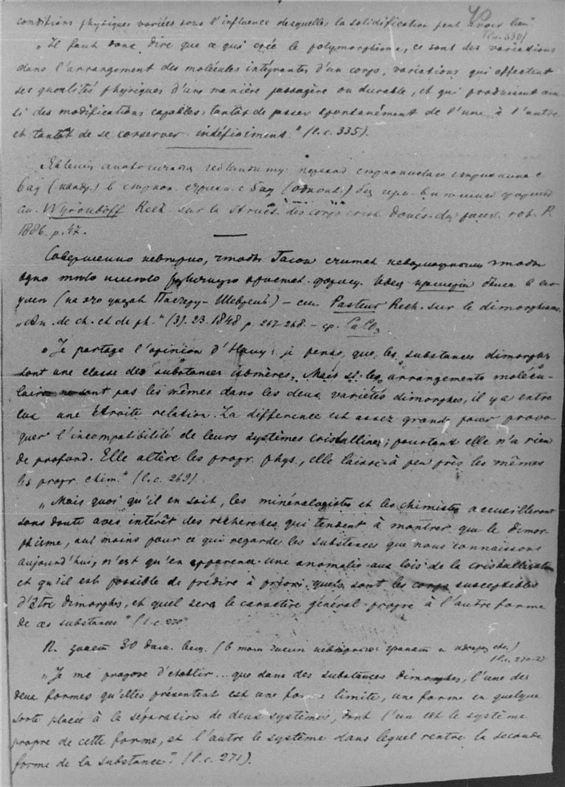 conditions physiques variées sous l'influence desquelles la solidification peut avoir lieu"
(l.c. 335)
„Il faut donc dire que ce qui crée le polymorphisme, ce sont des variations
dans l'arrangement des molécules intégrantes d'un corps, variations qui affectent
ses qualités physiques d'une manière passagère ou durable, et qui produisent ain-
si des modifications capables tantôt de passer spontanément de l'une à l'autre
et tantôt de se conserver indéfiniment." (l.c. 335).
Wyrouboff Rech. sur la struct. des corps crist. doués du pouv. rot. P.
1886. p. 47.
Совершенно неверно, чтобы Гаюи считал невозможным чтобы
одно тело имело
(на это указал Пастеру - ) - см. Pasteur Rech. sur le dimorphisme
„An. de ch. et de ph." (3). 23. 1848 p. 267-268. - ср.
„Je partage l'opinion d'Hauy: je pense, que les substances dimorphes
sont une classe des substances isomères. Mais si les arrangements molécu-
laires ne sont pas les mêmes dans les deux variétés dimorphes, il y a entre
eux une étroite relation. La différence est assez grande pour provo-
quer l'incompatibilité de leurs systèmes cristallins; pourtant elle n'a rien
de profond. Elle altère les propr. phys., elle laisse à peu près les mêmes
les propr. chim." (l.c. 269).
„Mais quoi qu'il en soit, les minéralogistes et les chimistes accueilleront
sans doute avec intérêt des recherches qui tendent à montrer que le dimor-
phisme, au moins pour ce qui regarde les substances que nous connaissons
aujourd'hui, n'est qu'en apparence une anomalie aux lois de la cristallisation
et qu'il est possible de prédire à priori quels sont les corps susceptibles
d'être dimorphes, et quel sera le caractère général propre à l'autre forme
de ces substances" (l.c. 270
П. знает 30 дим. вещ. (в том числе
„Je me propose d'établir ... que dans des substances dimorphes, l'une des
deux formes qu'elles présentent est une forme limite, une forme en quelque
sorte placée à la séparation de deux systèmes, dont l'un est le système
propre de cette forme, et l'autre le système dans lequel rentre la seconde
forme de la substance". (l.c. 271).